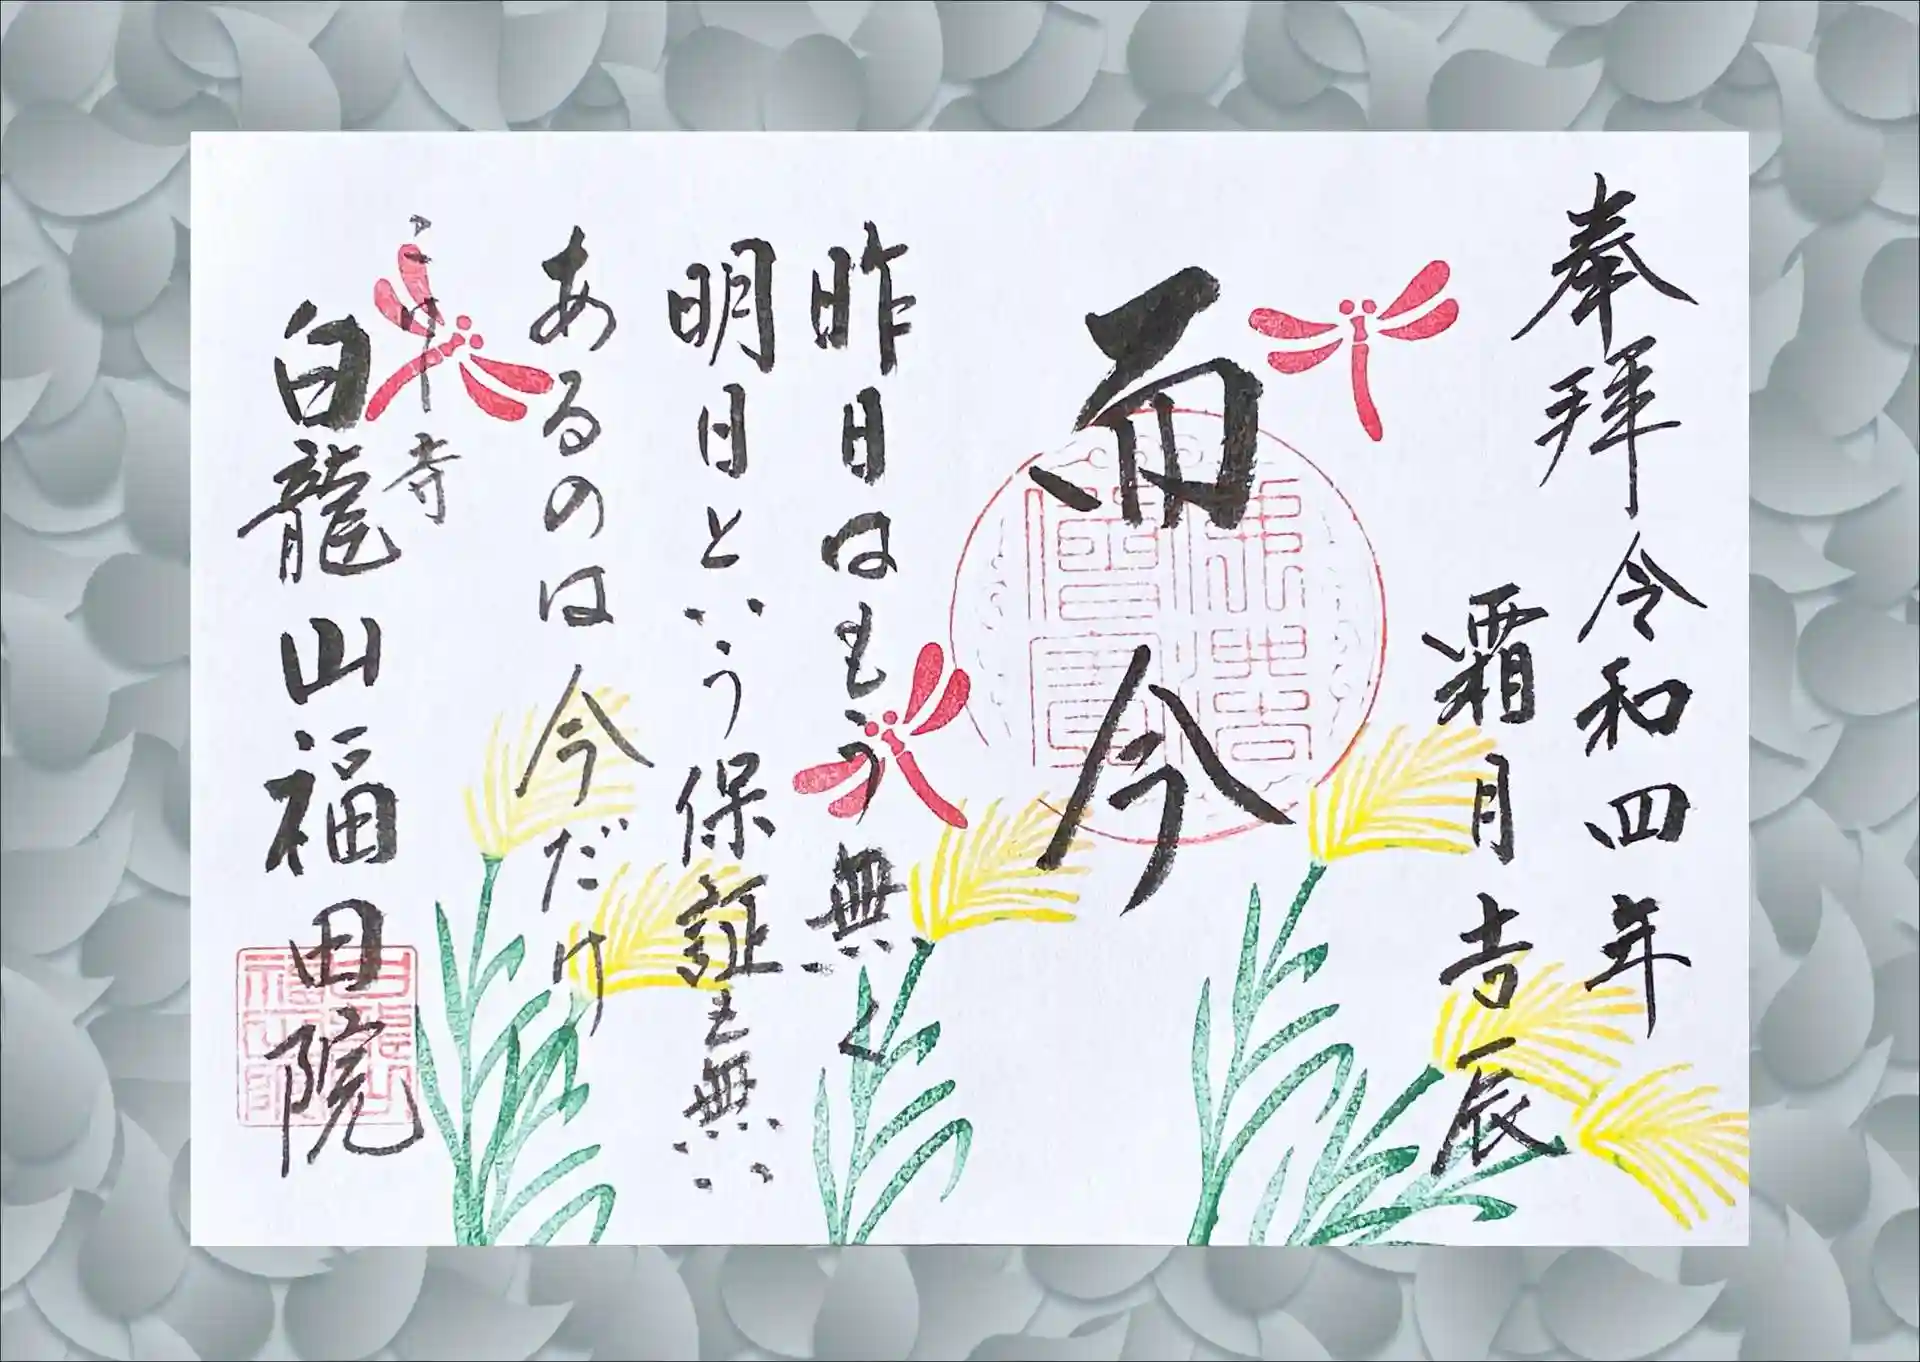 奉拝 令和四年
霜月吉辰
而今
昨日はもう無く
明日という保証も無い
あるのは今だけ
寺
白龍山福田院